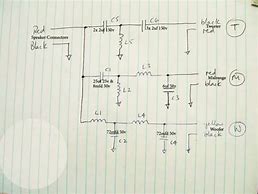 C5
C6
black
Red
2x 2uf 150v
2uf 150v
Tweeter
red
T
Speaker Connectors
black
L5
C1
L3
red
Midrange
black
M
L2
C3
L1
L4
yellow
Woofer
black
W
72uf 50v
C2
72uf 50v
C4